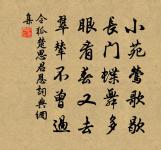 小苑莺歌歇
长门蝶舞多
眼看春又去
翠辇不曾过
令狐楚思君恩词典网
集